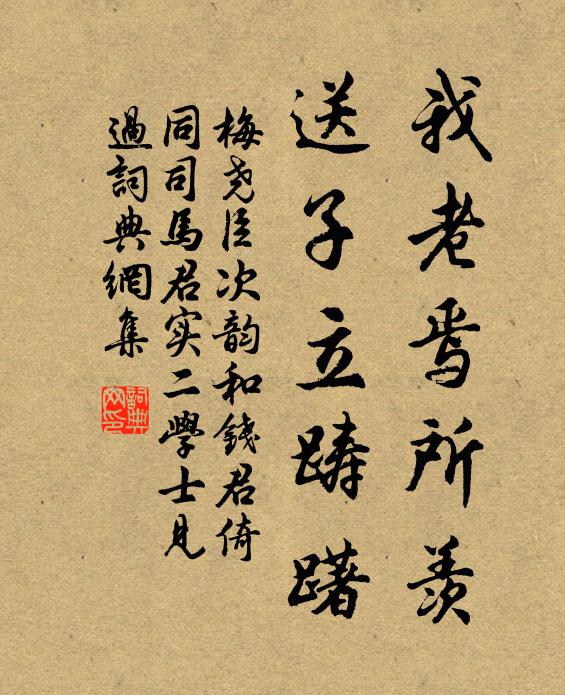 我老焉所羨
送子立踌躇
梅尧臣次韵和錢君倚
同司馬君实二學士見
過詞典網集
詞典网印